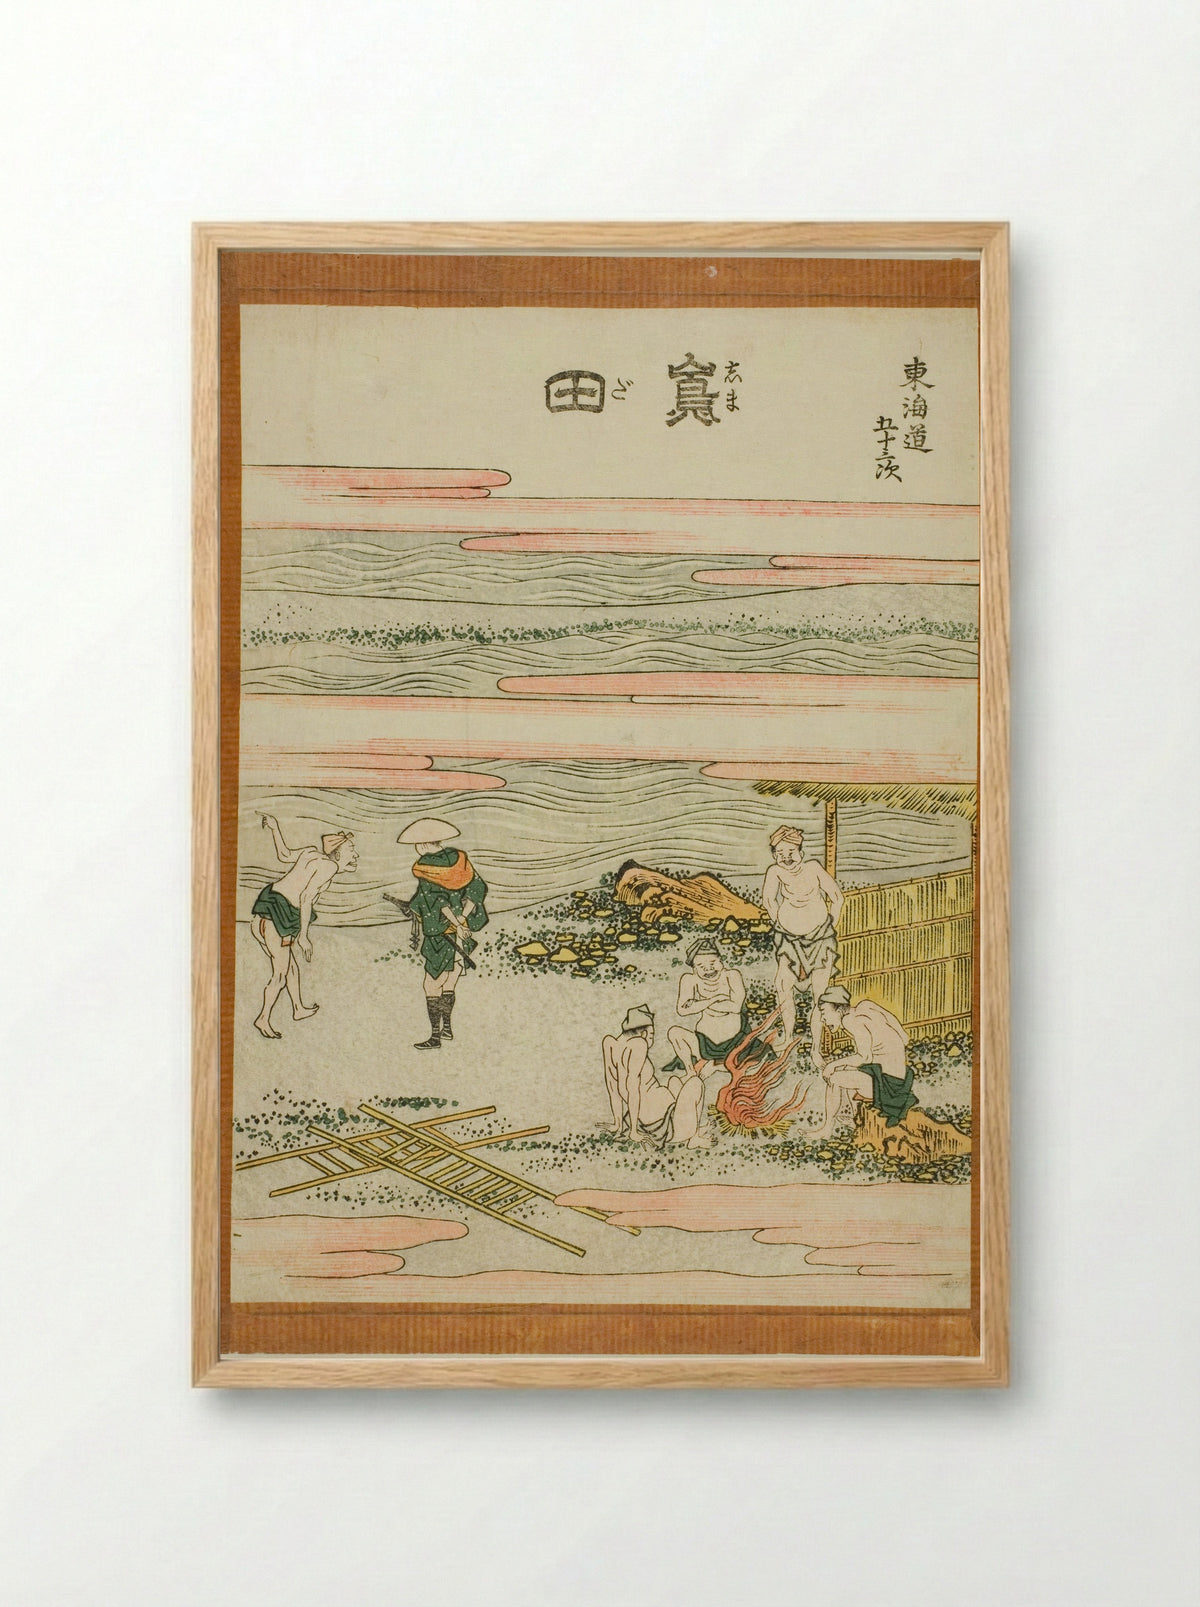 東海道
五十三次
嶌田
志まだ